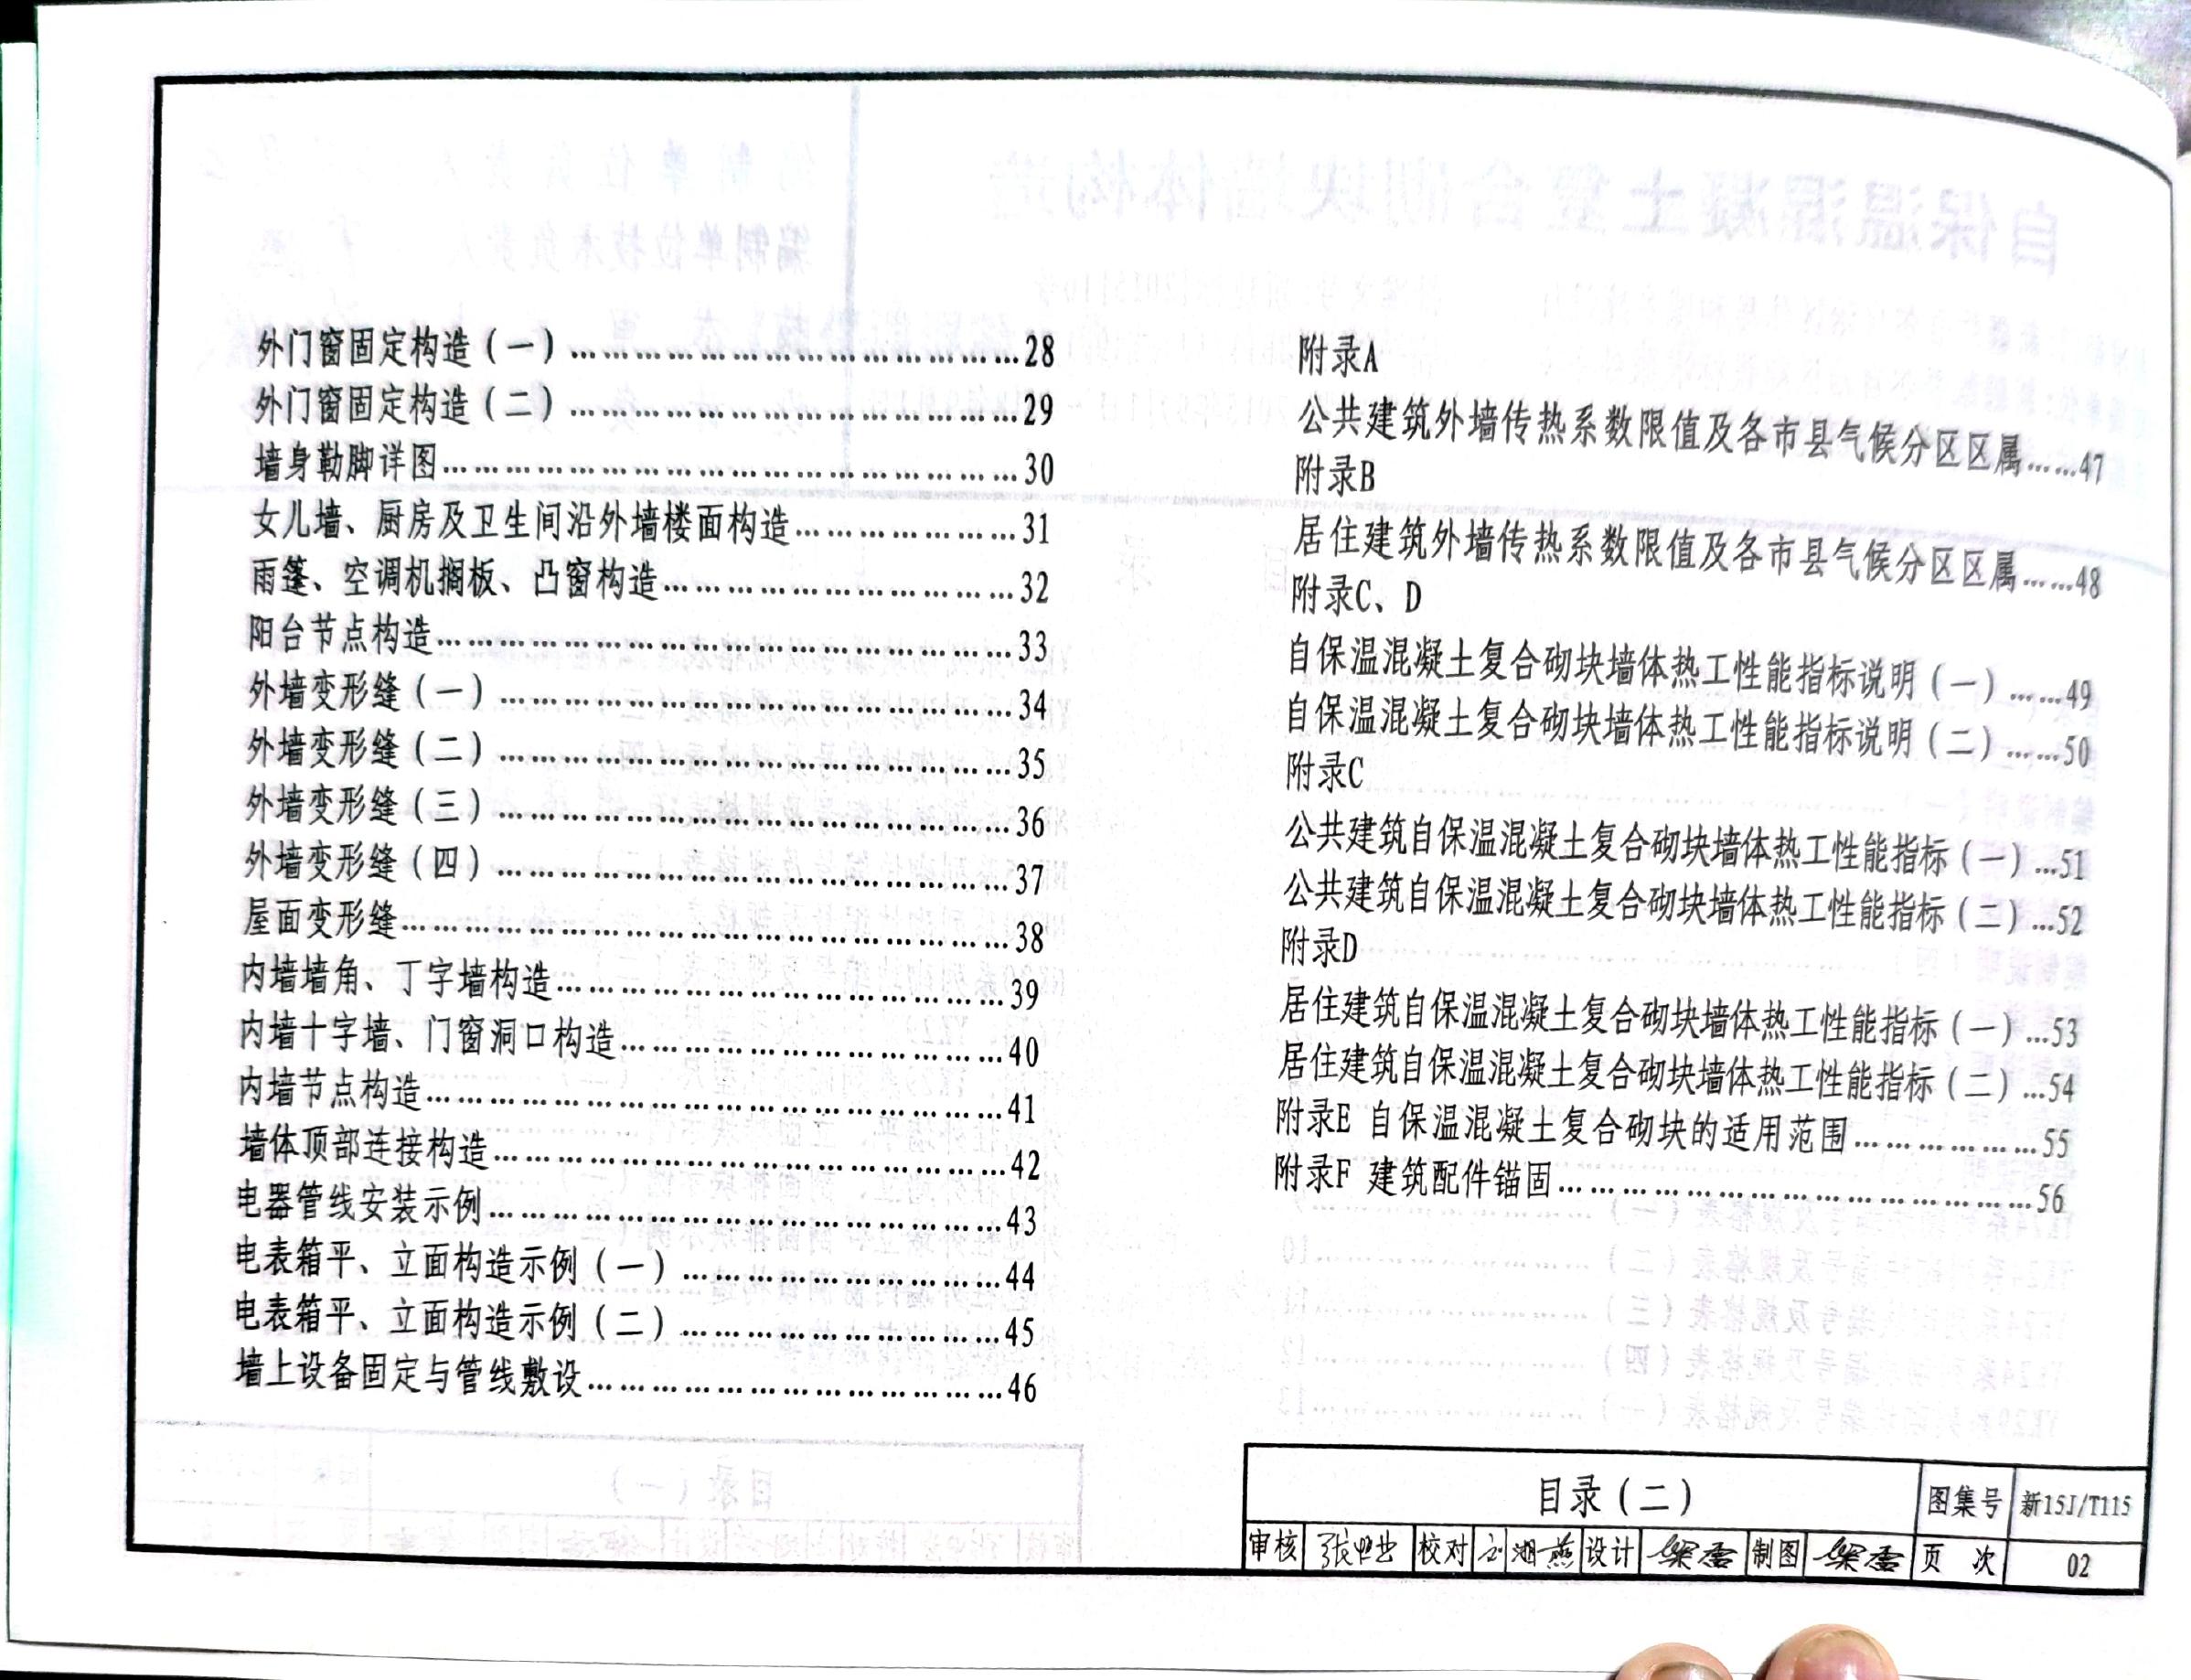 外门窗固定构造（一）……………………………………28
外门窗固定构造（二）……………………………………29
墙身勒脚详图………………………………………………30
女儿墙、厨房及卫生间沿外墙楼面构造…………………31
雨篷、空调机搁板、凸窗构造……………………………32
阳台节点构造………………………………………………33
外墙变形缝（一）…………………………………………34
外墙变形缝（二）…………………………………………35
外墙变形缝（三）…………………………………………36
外墙变形缝（四）…………………………………………37
屋面变形缝…………………………………………………38
内墙墙角、丁字墙构造……………………………………39
内墙十字墙、门窗洞口构造………………………………40
内墙节点构造………………………………………………41
墙体顶部连接构造…………………………………………42
电器管线安装示例…………………………………………43
电表箱平、立面构造示例（一）…………………………44
电表箱平、立面构造示例（二）…………………………45
墙上设备固定与管线敷设…………………………………46
附录A
公共建筑外墙传热系数限值及各市县气候分区区属……47
附录B
居住建筑外墙传热系数限值及各市县气候分区区属……48
附录C、D
自保温混凝土复合砌块墙体热工性能指标说明（一）……49
自保温混凝土复合砌块墙体热工性能指标说明（二）……50
附录C
公共建筑自保温混凝土复合砌块墙体热工性能指标（一）…51
公共建筑自保温混凝土复合砌块墙体热工性能指标（二）…52
附录D
居住建筑自保温混凝土复合砌块墙体热工性能指标（一）…53
居住建筑自保温混凝土复合砌块墙体热工性能指标（二）…54
附录E 自保温混凝土复合砌块的适用范围………………55
附录F 建筑配件锚固………………………………………56
目录（二） 图集号 新15J/T115
审核 校对 设计 制图 页 次 02